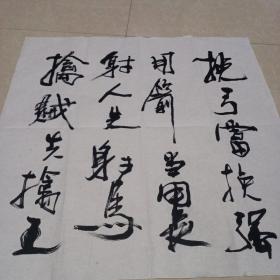 挽弓當挽强
用箭當用長
射人先射馬
擒賊先擒王